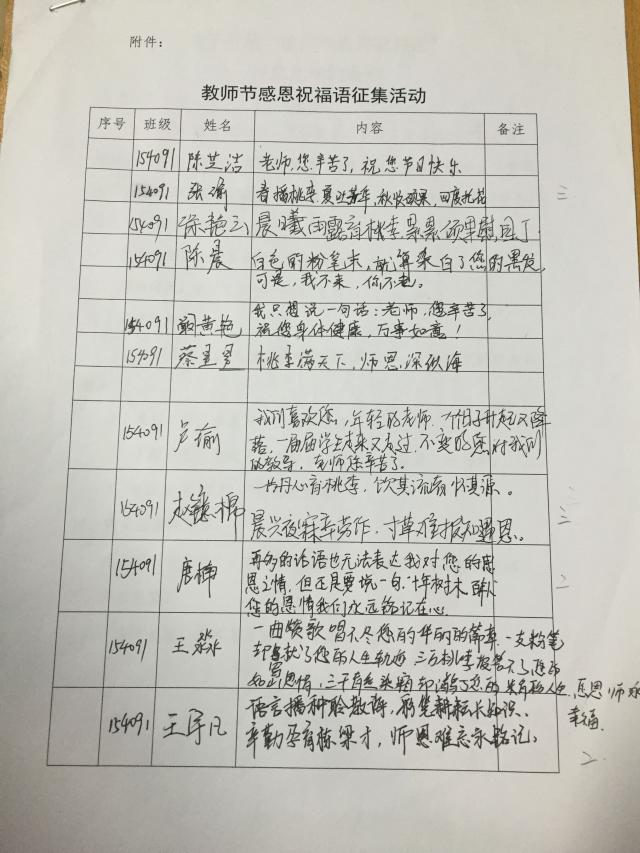 附件：
教师节感恩祝福语征集活动
序号 班级 姓名 内容 备注
154091 陈芝洁 老师,您辛苦了,祝您节日快乐
154091 张瑜 春播桃李,夏 芳华,秋收硕果,四度花 三
154091 徐艳云 晨曦雨露育桃李累累硕果慰园丁
154091 陈晨 白色的粉笔末，就算染白了您的黑发,
可是，我不来，你不老。
我只想说一句话：老师，您辛苦了,
154091 黄艳 祝您身体健康，万事如意！
154091 蔡星星 桃李满天下,师恩深似海
我们喜欢您,年轻的老师.
154091 卢瑜 落,一届届学生来又走过,不变的是您对我们
的教导，老师您辛苦了。
一片丹心育桃李，饮其流者怀其源。
154091 晨兴夜寐辛劳作，寸草难报知遇恩。 三
再多的话语也无法表达我对您的感
154091 唐 恩之情,但还是要说一句.十年树木 二
您的恩情我们永远铭记在心.
一曲颂歌唱不尽您的 的篇章.一支粉笔
154091 王淼 却写就了您的人生轨迹 三
恩情, 三千 恩师永
幸福.
语言播种 ,粉笔耕耘长知识、
154091 王宇凡 辛勤孕育栋梁才，师恩难忘永铭记。 2.